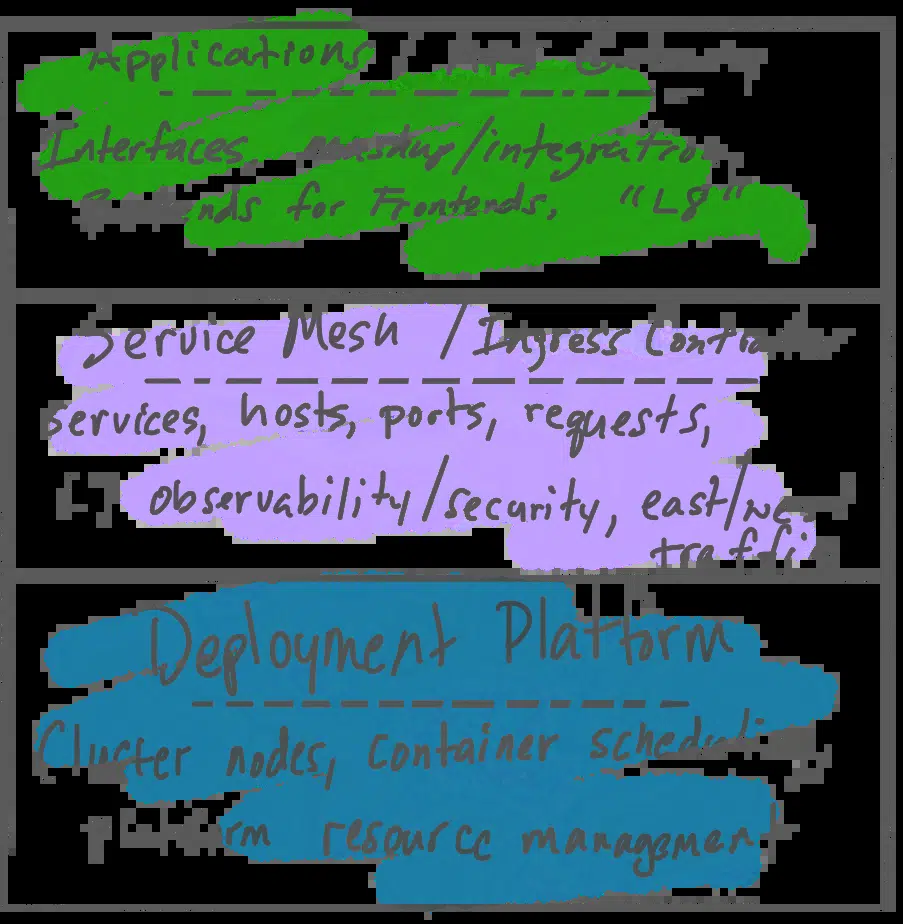 Applications / API Gateway
Interfaces, mashup/integration
Backends for Frontends, "L8"
Service Mesh / Ingress Controller
services, hosts, ports, requests,
observability/security, east/west
traffic
Deployment Platform
Cluster nodes, container scheduling
platform resource management